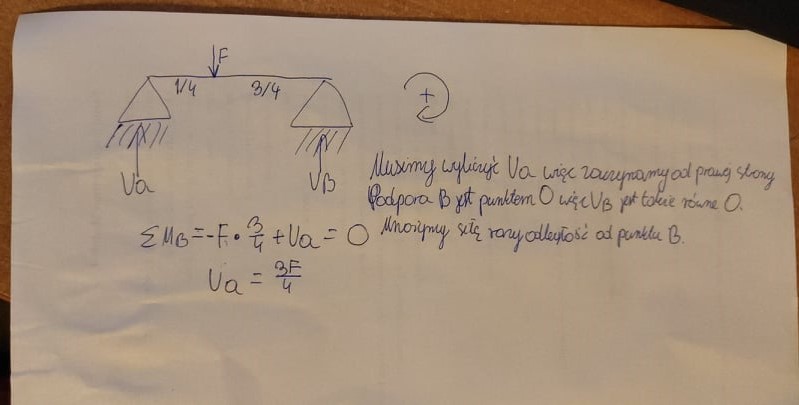 F
1/4 3/4
+
Va VB
Musimy wyliczyć Va więc zaczynamy od prawej strony
Podpora B jest punktem O więc VB jest także równe O.
ΣMB = -F · 3/4 + Va = O
Mnożymy siłę razy odległość od punktu B.
Va = 3F/4